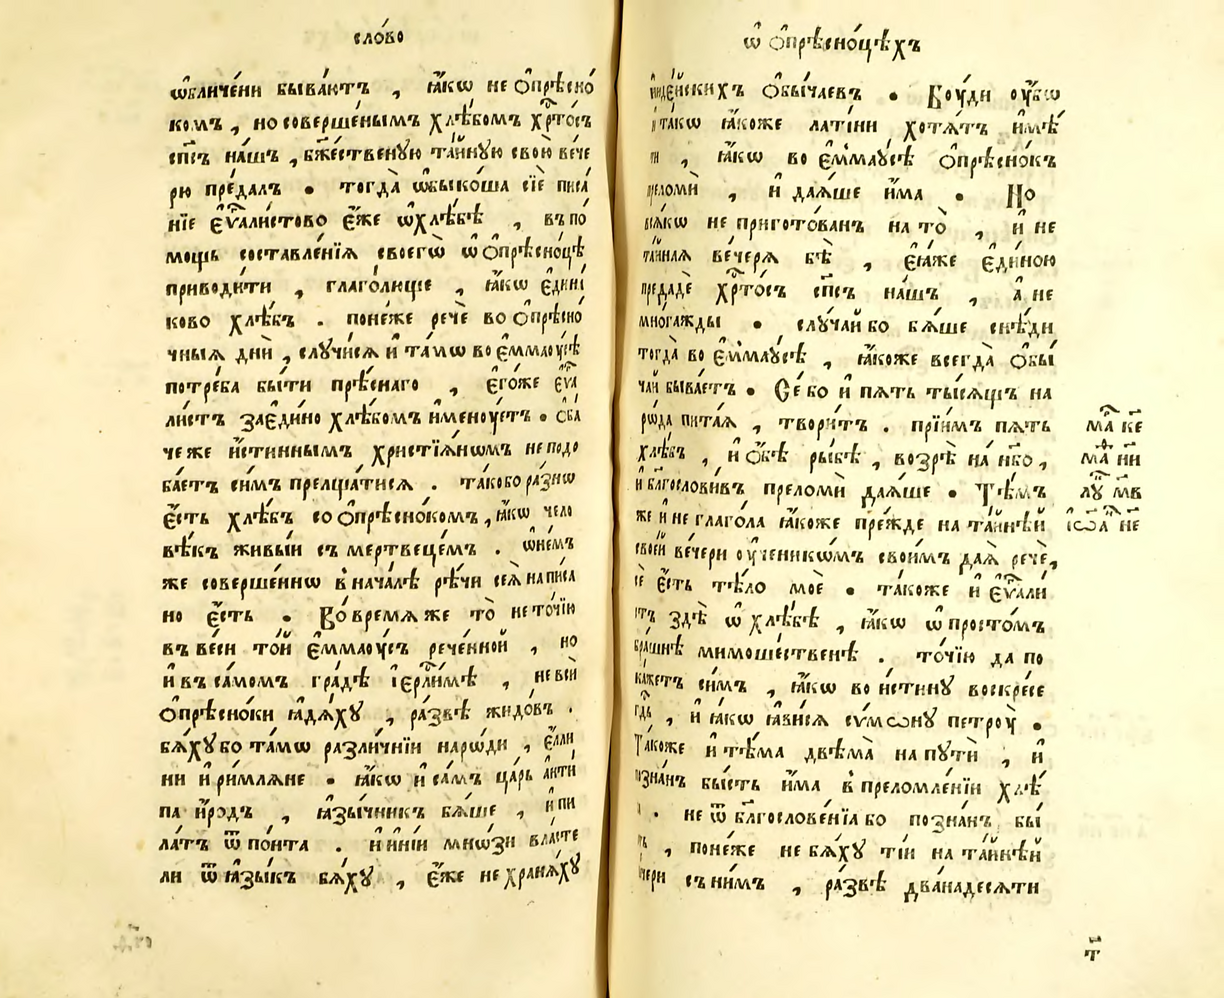 сло́во
ѡ҆бличе́ни быва́ютъ , ꙗ҆́кѡ не ѻ҆прѣсно́
комъ , но соверше́нымъ хлѣ́бомъ хрⷭ҇то́съ
сп҃съ на́шъ , бж҃ественꙋю та́йнꙋю свою̀ ве́че
рю пре́далъ • тогда̀ ѡ҆быко́ша сїѐ писа́
нїе є҆ѵⷢ҇али́стово є҆́же ѡ҆хлѣ́бѣ , въ по́
мощь составле́нїѧ своегѡ̀ ѡ҆ ѻ҆прѣсно́цѣ
приводи́ти , глаго́лющіе , ꙗ҆́кѡ є҆ди́нї
ково хлѣ́бъ . поне́же речѐ во ѻ҆прѣсно́
чныѧ дни̑ , слꙋчи́сѧ и҆ та́мѡ во є҆ммаоу́сѣ
потре́ба бы́ти прѣ́снаго , є҆го́же є҆ѵⷢ҇а
ли́стъ заеди́но хлѣ́бомъ и҆менꙋ́етъ • Ѻ҆ба
че же и҆́стиннымъ христїа́нѡмъ неподо
ба́етъ си́мъ прелща́тисѧ . та́кобо ра́знѡ
є҆́сть хлѣ́бъ со ѻ҆прѣсно́комъ , ꙗ҆́кѡ чело
вѣ́къ живы́й съ мертвеце́мъ . ѡ҆не́мъ
же соверше́ннѡ в нача́лѣ рѣ́чи сеѧ̀ написа
но є҆́сть • Во́времѧ же то̀ не то́чїю
въ ве́си то́й є҆ммаоу́съ рече́нной , но
и҆ въ са́момъ гра́дѣ і҆ерⷭ҇ли́мѣ , не всѝ
ѻ҆прѣсно́ки ꙗ҆дѧ́хꙋ , ра́звѣ жидо́въ .
бѧ́хꙋбо та́мѡ разли́чнїи наро́ди , є҆́лли
ни и҆ ри́млѧне • ꙗ҆́кѡ и҆ са́мъ ца́рь а҆нті́
па и҆́родъ , ꙗ҆зы́чникъ бѧ́ше , и҆ пи
ла́тъ ѿ по́нта . и҆ и҆ні́и мно́зи вла́сте
ли ѿ ꙗ҆зы́къ бѧ́хꙋ , є҆́же не хранѧ́хꙋ
ѡ҆ ѻ҆прѣсно́цѣхъ
ѻ҆бы́чаевъ • Бꙋ́ди оу҆́бѡ
и҆ та́кѡ ꙗ҆́коже лати́ни хотѧ́тъ и҆мѣ́
ти , ꙗ҆́кѡ во є҆ммаꙋ́сѣ ѻ҆прѣсно́къ
преломѝ , и҆ даѧ́ше и҆́ма • Но
не пригото́ванъ на то̀ , и҆ не
та́йнаѧ ве́черѧ бѣ̀ , є҆ю́же є҆ди́ною
предадѐ хрⷭ҇то́съ сп҃съ на́шъ , а҆ не
мно́гажды • слꙋ́чай бо бѧ́ше снѣ́ди
тогда̀ во є҆ммаꙋ́сѣ , ꙗ҆́коже всегда̀ ѻ҆бы́
чай быва́етъ • Се́ бо и҆ пѧ́ть ты́сѧщъ на
рѡ́да пита́ѧ , твори́тъ . прїи́мъ пѧ́ть
хлѣ́бъ , и҆ ѻ҆́бѣ ры́бѣ , возрѣ̀ на́ нб҃о ,
и҆ благослови́въ преломѝ даѧ́ше • Тѣ́мъ
же и҆ не глаго́ла ꙗ҆́коже пре́жде на та́йнѣй
свое́й ве́чери оу҆ченикѡ́мъ свои́мъ даѧ̀ речѐ ,
сѐ є҆́сть тѣ́ло моѐ • та́коже и҆ є҆ѵⷢ҇али́
стъ здѣ̀ ѡ҆ хлѣ́бѣ , ꙗ҆́кѡ ѡ҆ просто́мъ
бра́шнѣ мимоше́ственѣ . то́чїю да по
ка́жетъ си́мъ , ꙗ҆́кѡ во и҆́стинꙋ воскре́се
гдⷭ҇ь , и҆ ꙗ҆́кѡ ꙗ҆ви́сѧ сѵ́мѡнꙋ петро́ꙋ •
Та́коже и҆ тѣ́ма двѣма̀ на пꙋтѝ , и҆
позна́нъ бы́сть и҆́ма в преломле́нїи хлѣ́
. не ѿ благослове́нїѧ бо позна́нъ бы́
, поне́же не бѧ́хꙋ ті́и на та́йнѣй
ве́чери съ ни́мъ , ра́звѣ двана́десѧти
маⷴ҇ к҃е
маⷬ҇ н҃и
лꙋⷦ҇ м҃в
і҆ѡⷩ҇а н҃е
т҃